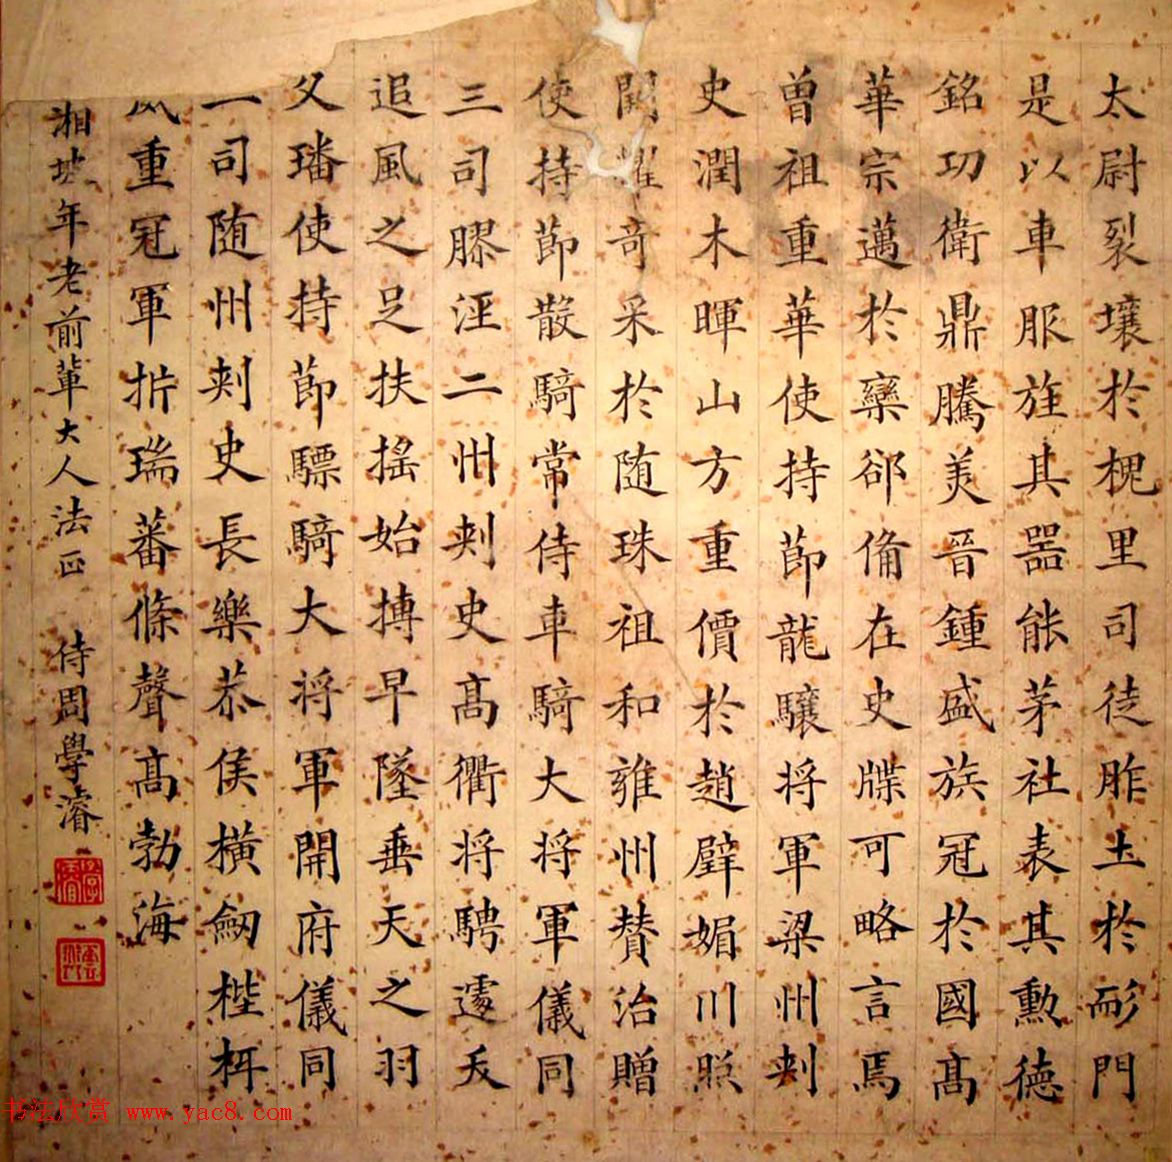 太尉裂壤於槐里司徒胙土於耏門
是以車服旌其器能茅社表其勲德
銘功衛鼎騰美晉鍾盛族冠於國髙
華宗邁於欒郤備在史牒可略言焉
曽祖重華使持節龍驤将軍梁州刺
史潤木暉山方重價於趙璧媚川照
闕耀奇采於随珠祖和雍州賛治贈
使持節散騎常侍車騎大将軍儀同
三司膠涇二州刺史髙衢将騁遽夭
追風之足扶搖始摶早墜垂天之羽
父璠使持節驃騎大将軍開府儀同
司随州刺史長樂恭侯橫劒梐枑
重冠軍析瑞蕃條聲髙勃海
湘坡年老前輩大人法正 侍周學濬
书法欣赏 www.yac8.com